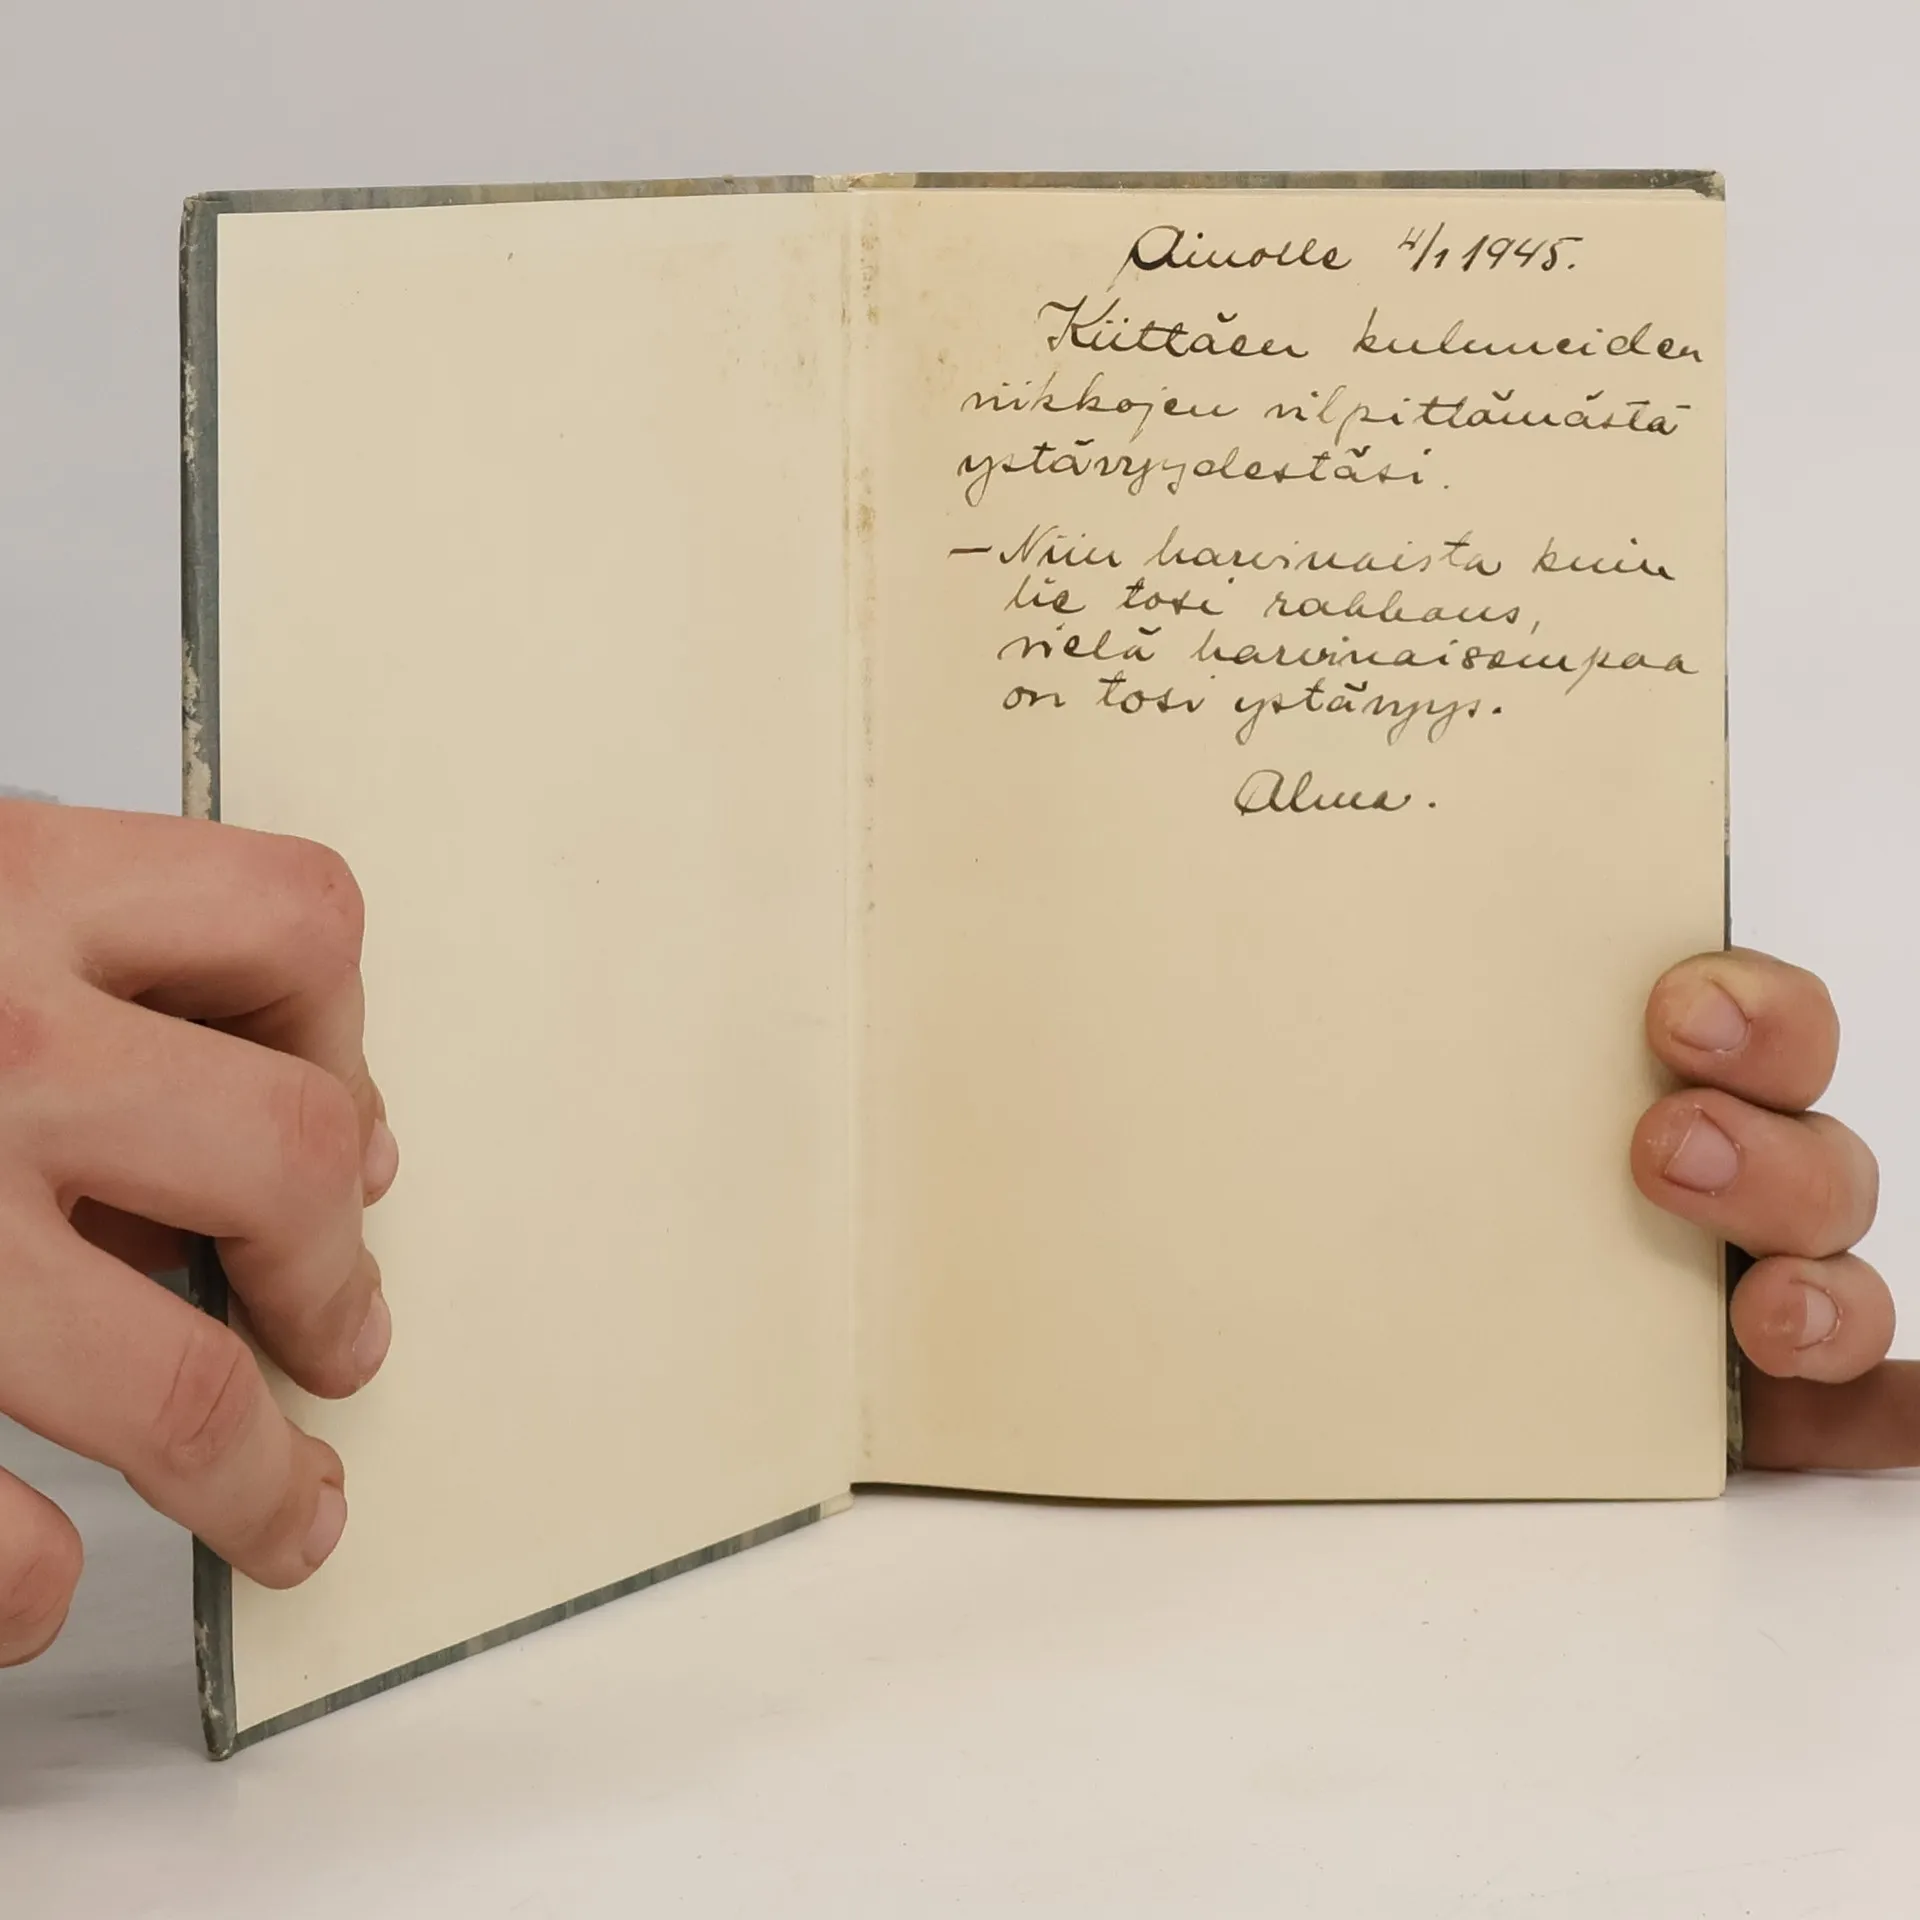 Ainolle 4/1 1945.
Kiittäen kuluneiden
viikkojen vilpittömästä
ystävyydestäsi.
— Niin harvinaista kuin
lie tosi rakkaus,
vielä harvinaisempaa
on tosi ystävyys.
Alma.